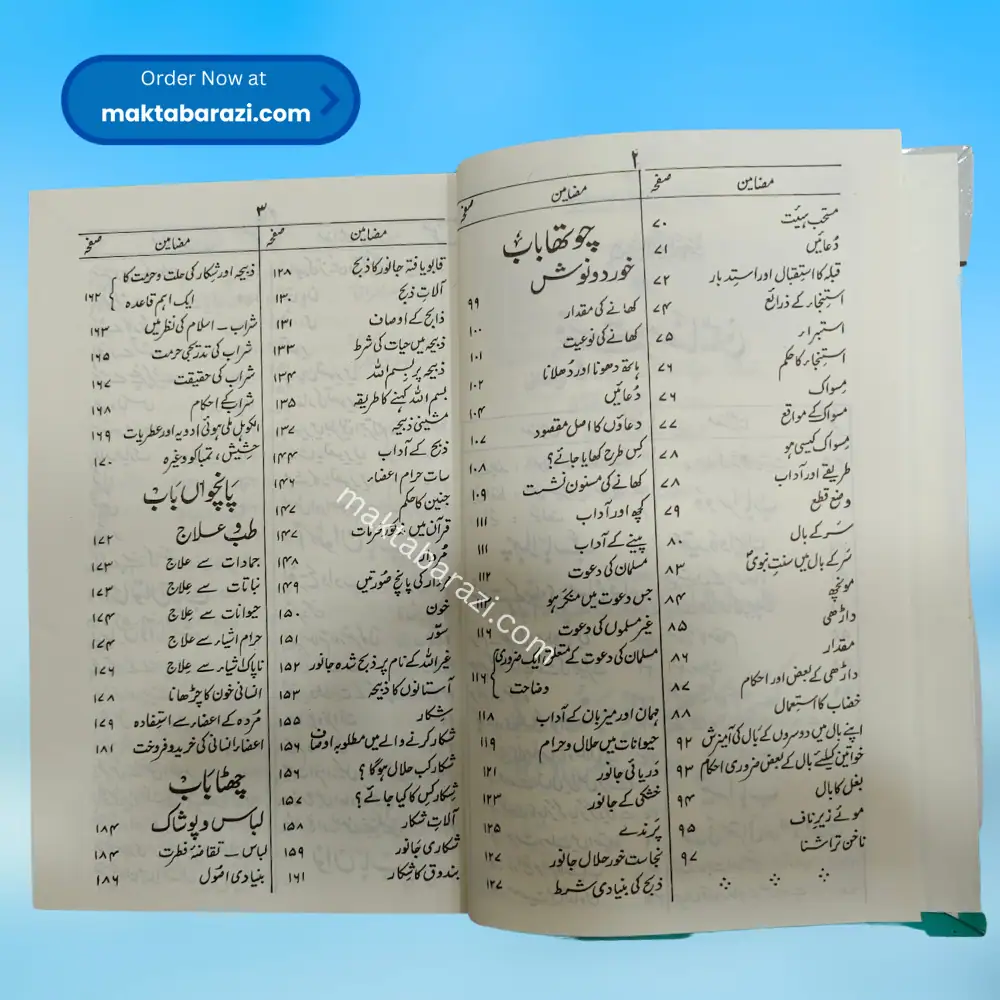 Order Now at
maktabarazi.com
۲
مضامین صفحہ
مستحب ہیئت ۷۰
دُعائیں ۷۱
قبلہ کا استقبال اور استدبار ۷۲
استنجار کے ذرائع ۷۴
استبرار ۷۵
استنجار کا حکم ۷۶
مِسواک ۷۶
مسواک کے مواقع ۷۷
مسواک کیسی ہو ۷۸
طریقے اور آداب ۷۸
وضع قطع ۷۹
سَر کے بال ۸۰
سَر کے بال میں سنتِ نبویؐ ۸۳
مونچھ ۸۴
داڑھی ۸۵
مقدار ۸۶
داڑھی کے بعض اور احکام ۸۷
خضاب کا استعمال ۸۸
اپنے بال میں دوسروں کے بال کی آمیزش ۹۲
خواتین کیلئے بال کے بعض ضروری احکام ۹۳
بغل کا بال ۹۴
موئے زیرِ ناف ۹۵
ناخن تراشنا ۹۷
مضامین صفحہ
چوتھا باب
خورد و نوش
کھانے کی مقدار ۹۹
کھانے کی نوعیت ۱۰۰
ہاتھ دھونا اور دُھلانا ۱۰۱
دُعائیں ۱۰۲
دعاؤں کا اصل مقصود ۱۰۴
کِس طرح کھایا جائے؟ ۱۰۷
کھانے کی مسنون نشست ۱۰۸
کچھ اور آداب ۱۰۹
پینے کے آداب ۱۱۱
مسلمان کی دعوت ۱۱۱
جس دعوت میں منکر ہو ۱۱۲
غیر مسلموں کی دعوت
مسلمان کی دعوت کے متعلق ایک ضروری ۱۱۶
وضاحت ۱۱۶
مہمان اور میزبان کے آداب ۱۱۸
حیوانات میں حلال و حرام ۱۱۹
دَریائی جانور ۱۲۱
خشکی کے جانور ۱۲۳
پَرندے ۱۲۵
نجاست خور حلال جانور ۱۲۷
ذبح کی بنیادی شرط ۱۲۷
۳
مضامین صفحہ
قابو یافتہ جانور کا ذبح ۱۲۸
آلاتِ ذبح ۱۳۰
ذابح کے اوصاف ۱۳۱
ذبیحہ میں حیات کی شرط ۱۳۳
ذبیحہ پر بسم اللہ ۱۳۴
بسم اللہ کہنے کا طریقہ ۱۳۵
مشینی ذبیحہ ۱۳۷
ذبح کے آداب ۱۴۴
سات حرام اعضار ۱۴۶
جنین کا حکم ۱۴۷
قرآن میں مذکور محرمات ۱۴۷
مُردار ۱۴۸
مُردار کی پانچ صُورتیں ۱۴۹
خون ۱۵۰
سوّر ۱۵۱
غیر اللہ کے نام پر ذبح شدہ جانور ۱۵۲
آستانوں کا ذبیحہ ۱۵۳
شِکار ۱۵۵
شکار کرنے والے میں مطلوبہ اوصاف ۱۵۶
شکار کب حلال ہوگا؟ ۱۵۶
شکار کِس کا کیا جائے؟ ۱۵۷
آلاتِ شکار ۱۵۸
شکاری جَانور ۱۵۹
بندوق کا شکار ۱۶۱
مضامین صفحہ
ذبیحہ اور شکار کی حلت و حرمت کا
ایک اہم قاعدہ ۱۶۲
شراب ۔ اسلام کی نظر میں ۱۶۳
شراب کی تدریجی حرمت ۱۶۵
شراب کی حقیقت ۱۶۷
شراب کے احکام ۱۶۸
الکوہل ملی ہوئی ادویہ اور عطریات ۱۶۹
حشیش، تمباکو وغیرہ ۱۷۰
پانچواں باب
طب و علاج ۱۷۲
جمادات سے علاج ۱۷۳
نباتات سے علاج ۱۷۳
حیوانات سے علاج ۱۷۴
حرام اشیار سے علاج ۱۷۴
ناپاک اشیار سے علاج ۱۷۶
انسانی خون کا چڑھانا ۱۷۸
مُردہ کے اعضار سے استفادہ ۱۷۹
اعضار انسانی کی خرید و فروخت ۱۸۱
چھٹا باب
لباس و پوشاک ۱۸۴
لباس ۔ تقاضۂ فطرت ۱۸۴
بنیادی اصُول ۱۸۶
maktabarazi.com